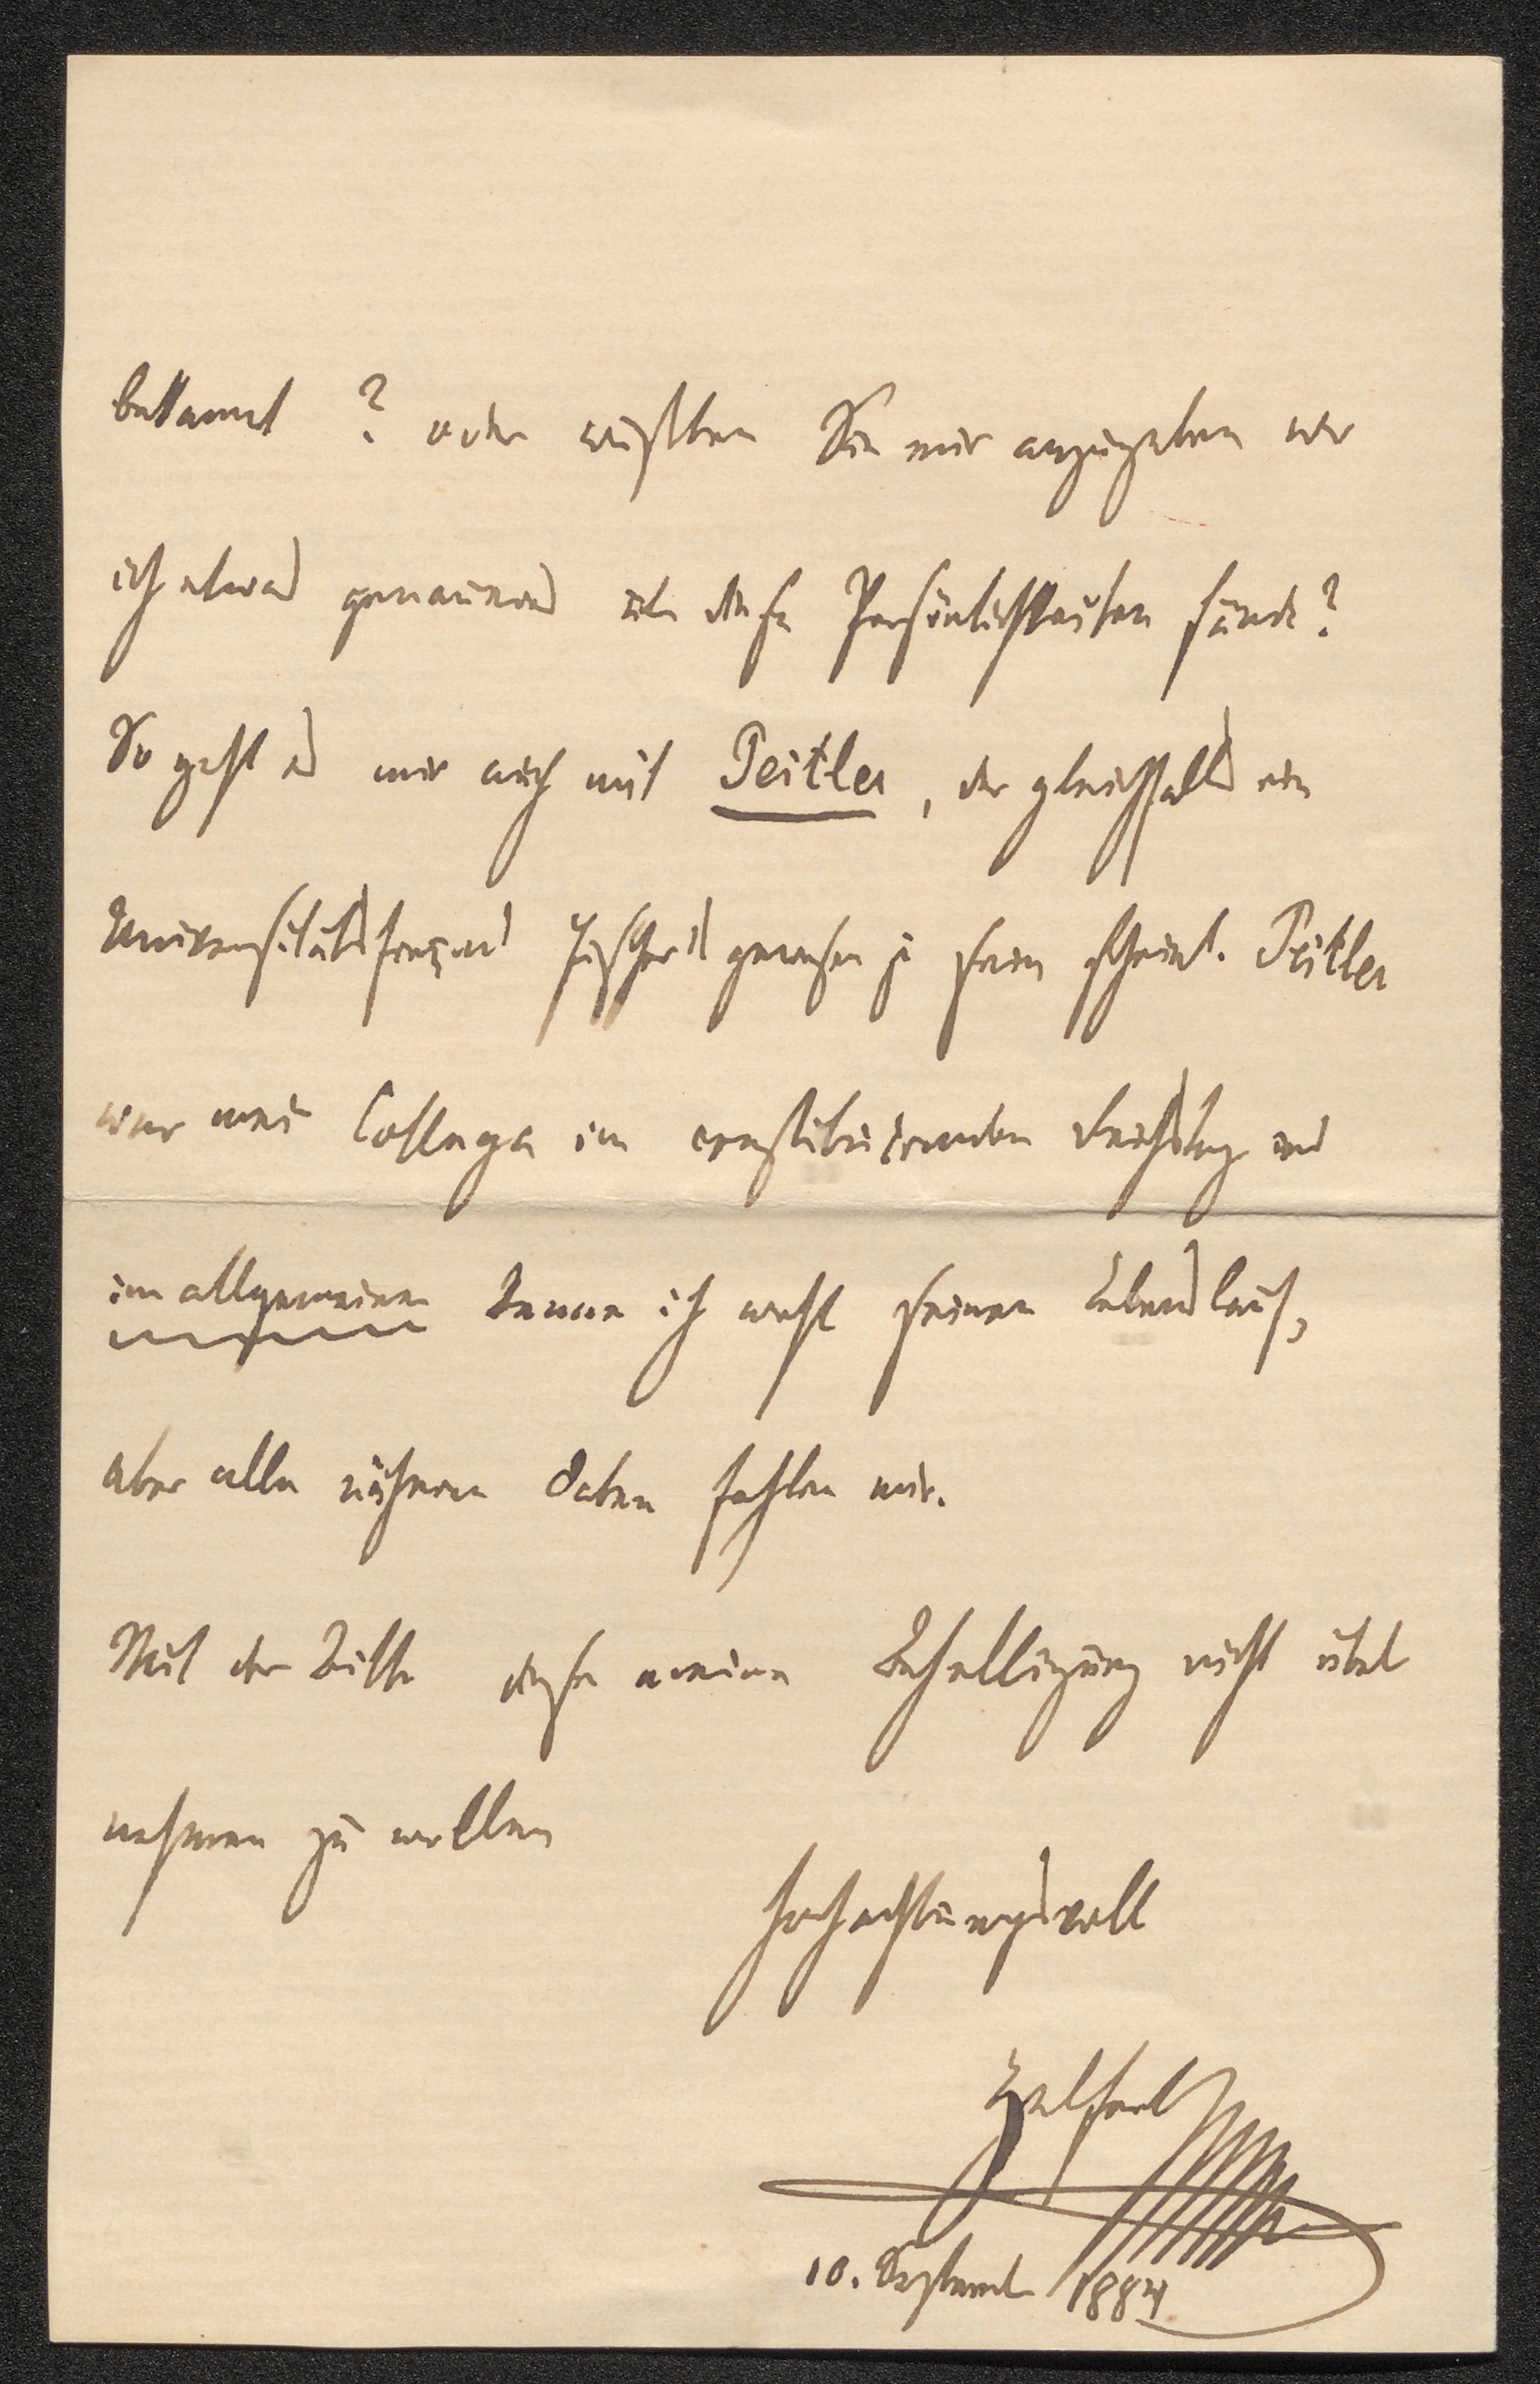 bekannt? oder wüßten Sie mir anzugeben wo
ich etwas genaueres über diese Persönlichkeiten fände?
So geht es mir auch mit Peitler, der gleichfalls ein
Universitätsfreund Fischer's gewesen zu sein scheint. Peitler
war mein Collega im constituirenden Reichstag und
im allgemeinen kenne ich wohl seinen Lebenslauf,
aber alle näheren Daten fehlen mir.
Mit der Bitte diese meine Behelligung nicht übel
nehmen zu wollen
hochachtungsvoll
Helfert
10. September 1884